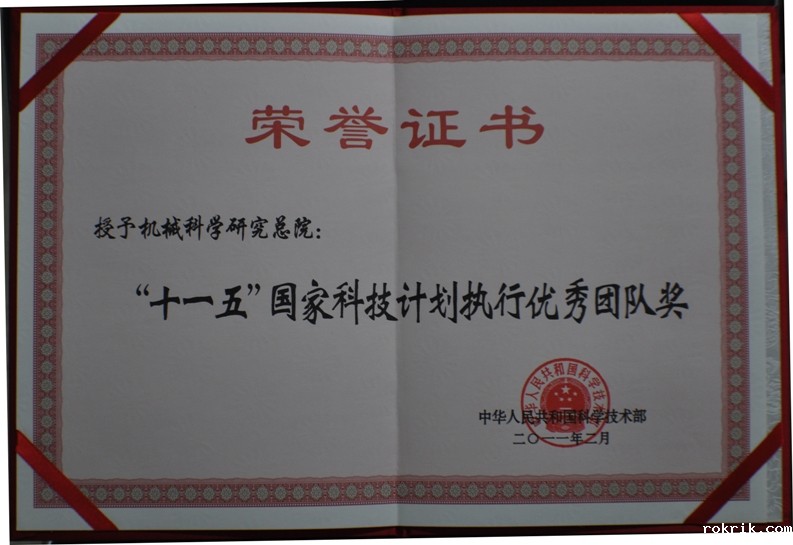 荣誉证书
授予机械科学研究总院：
“十一五”国家科技计划执行优秀团队奖
中华人民共和国科学技术部
中华人民共和国科学技术部
二〇一一年二月
rokrik.com